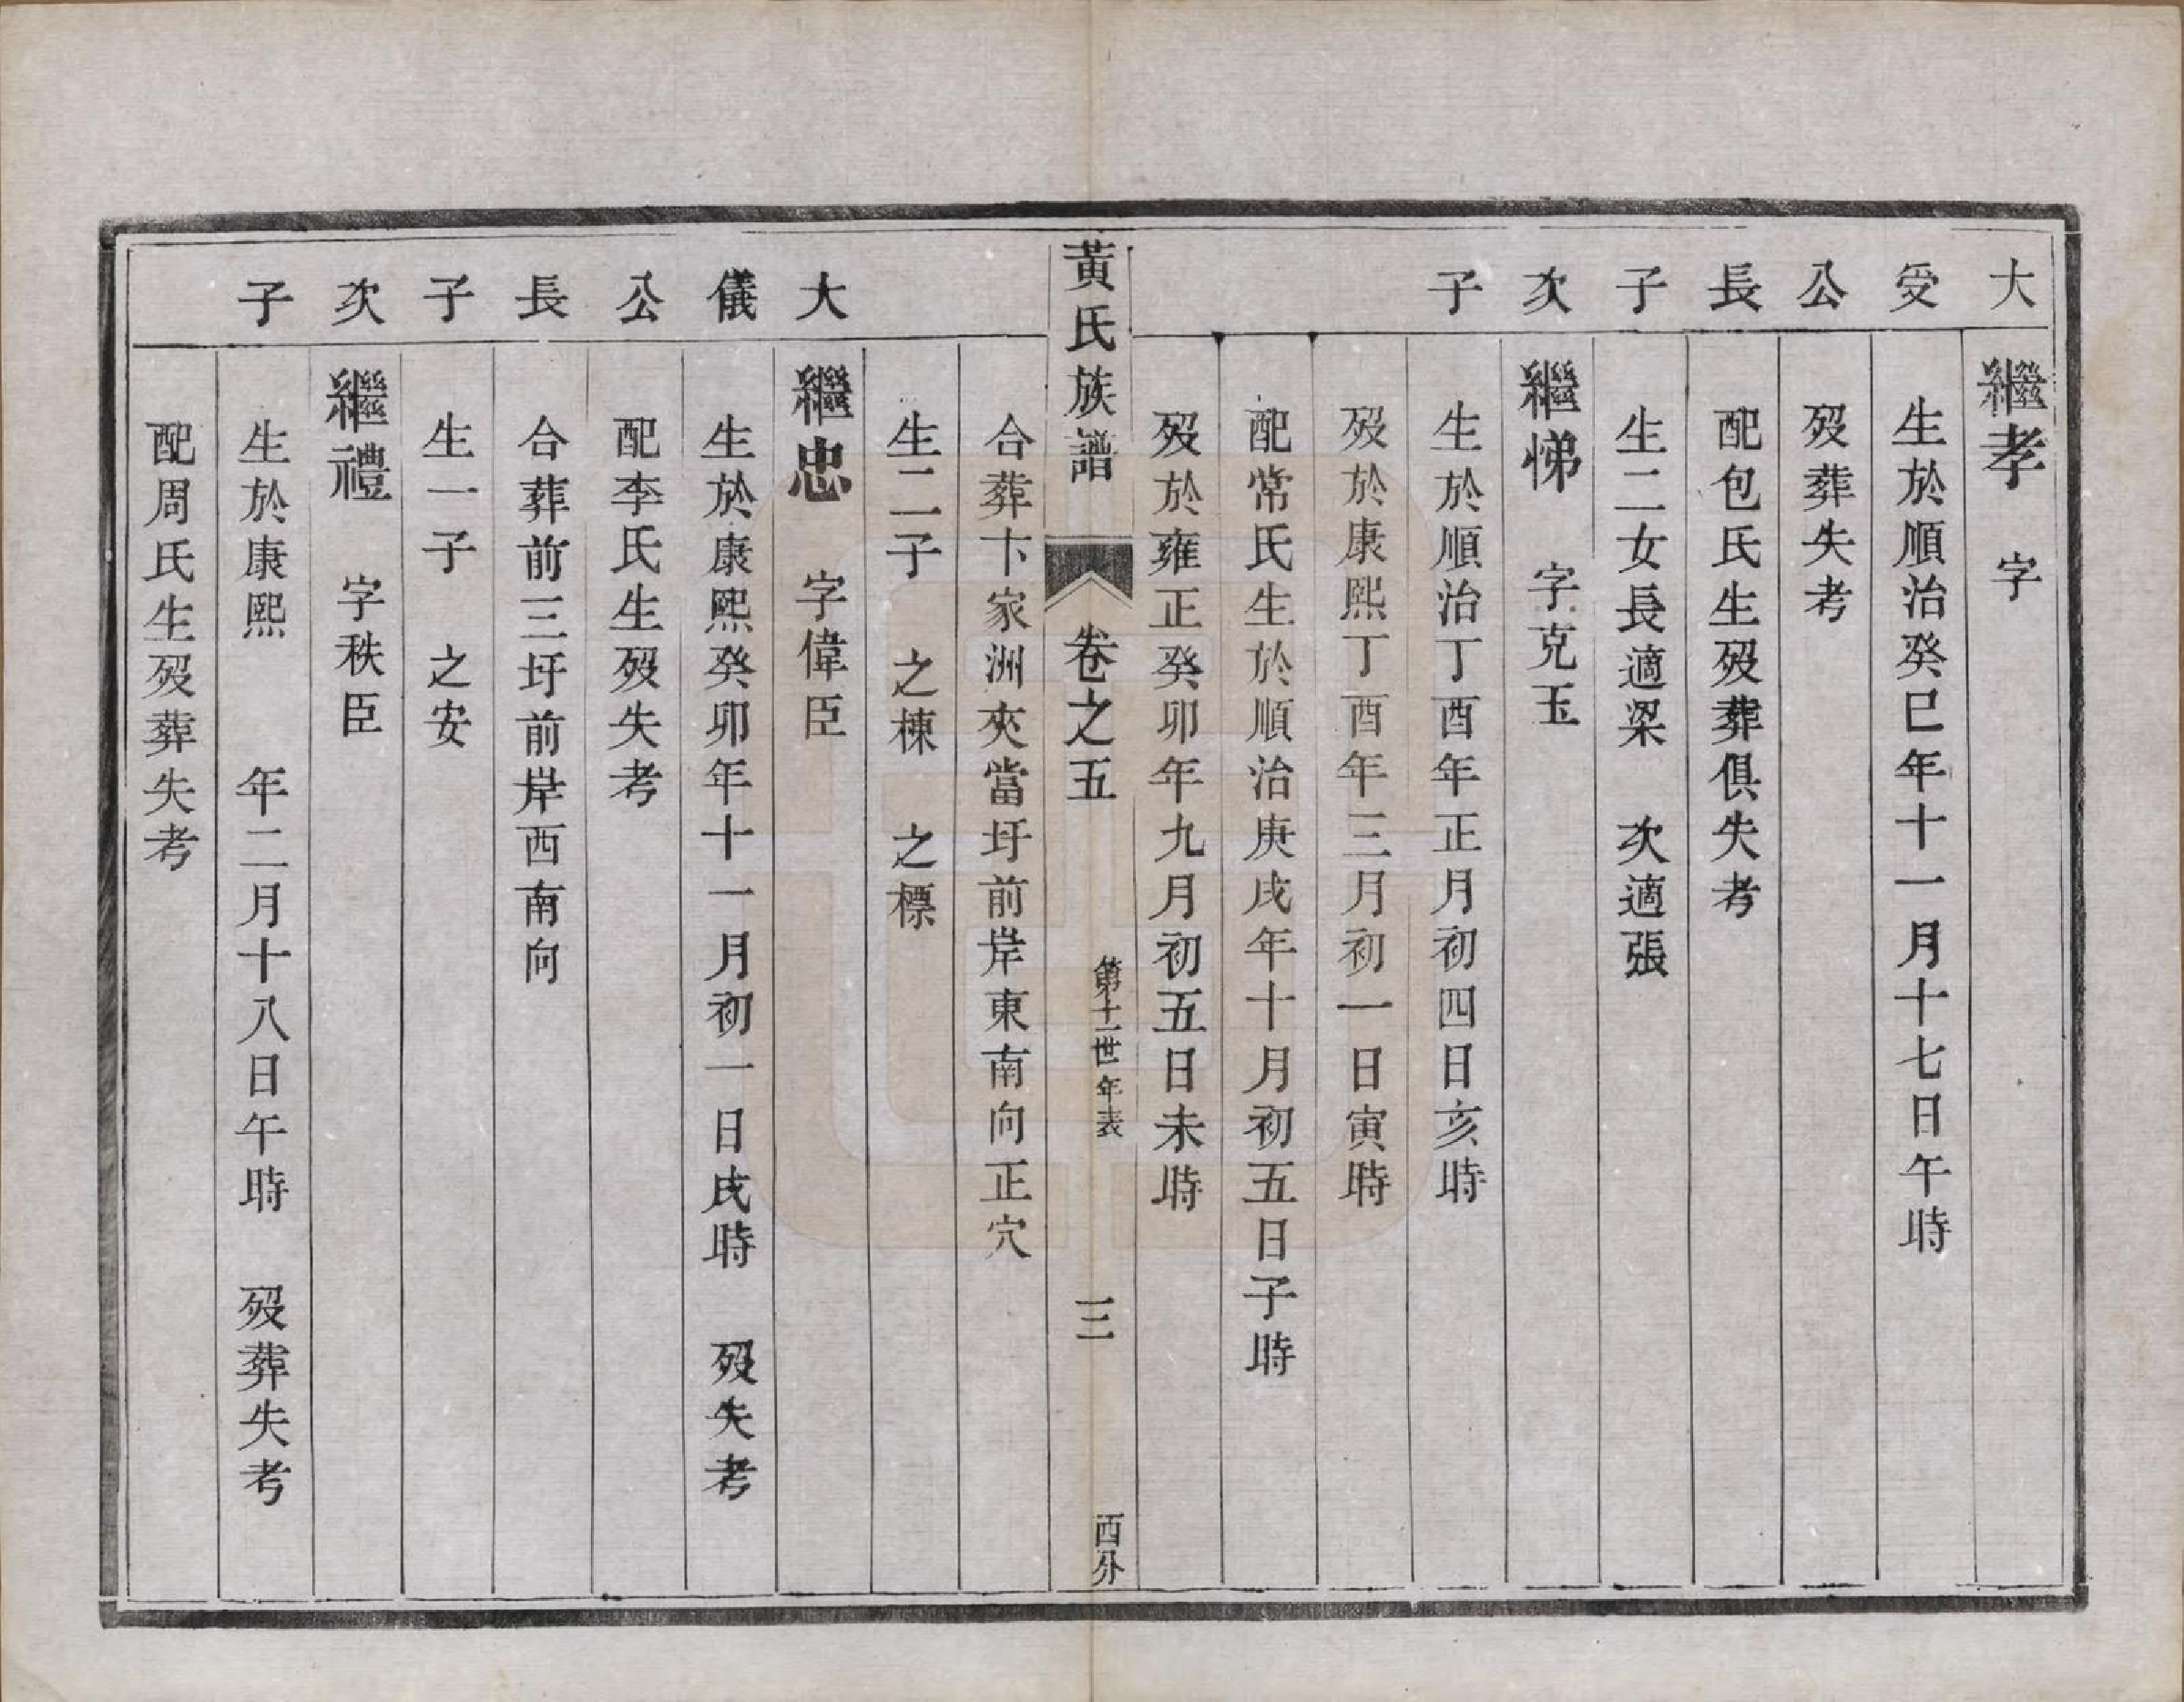 大受公長子 次子
繼孝 字
生於順治癸巳年十一月十七日午時
歿葬失考
配包氏生歿葬俱失考
生二女長適梁 次適張
繼悌 字克玉
生於順治丁酉年正月初四日亥時
歿於康熙丁酉年三月初一日寅時
配常氏生於順治庚戌年十月初五日子時
歿於雍正癸卯年九月初五日未時
黃氏族譜 卷之五 第十一世年表 三 西分
合葬卞家洲夾當圩前岸東南向正穴
生二子 之棟 之標
大儀公長子 次子
繼忠 字偉臣
生於康熙癸卯年十一月初一日戌時 歿失考
配李氏生歿失考
合葬前三圩前岸西南向
生一子 之安
繼禮 字秩臣
生於康熙 年二月十八日午時 歿葬失考
配周氏生歿葬失考